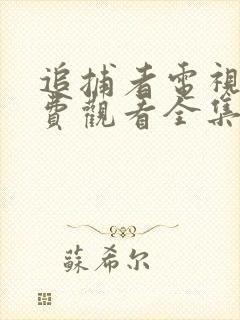 追捕者電視
費觀看全集
蘇希尔